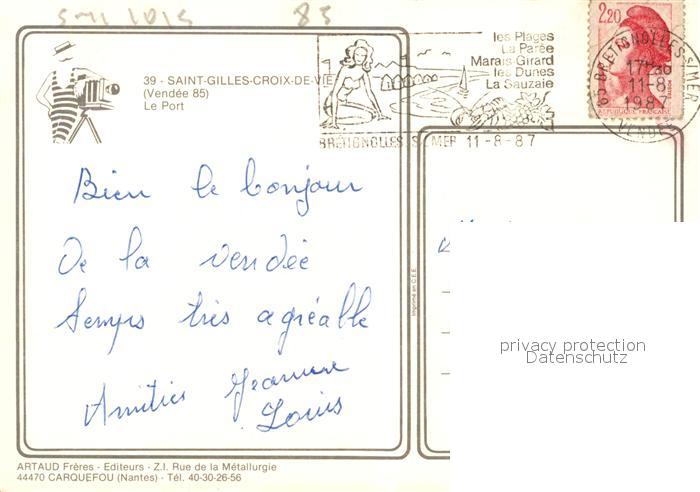 85
39 - SAINT-GILLES-CROIX-DE-VIE
(Vendée 85)
Le Port
les Plages
La Parée
Marais Girard
les Dunes
La Sauzaie
BRETIGNOLLES S. MER 11-8-87
2,20
REPUBLIQUE FRANÇAISE
85 BRETIGNOLLES S/MER
11-8
1987
VENDEE
Bien le bonjour
De la vendée
Temps très agréable
Amitiés Jeannine
Louis
Imprimé en C.E.E.
privacy protection
Datenschutz
ARTAUD Frères - Editeurs - Z.I. Rue de la Métallurgie
44470 CARQUEFOU (Nantes) - Tél. 40-30-26-56